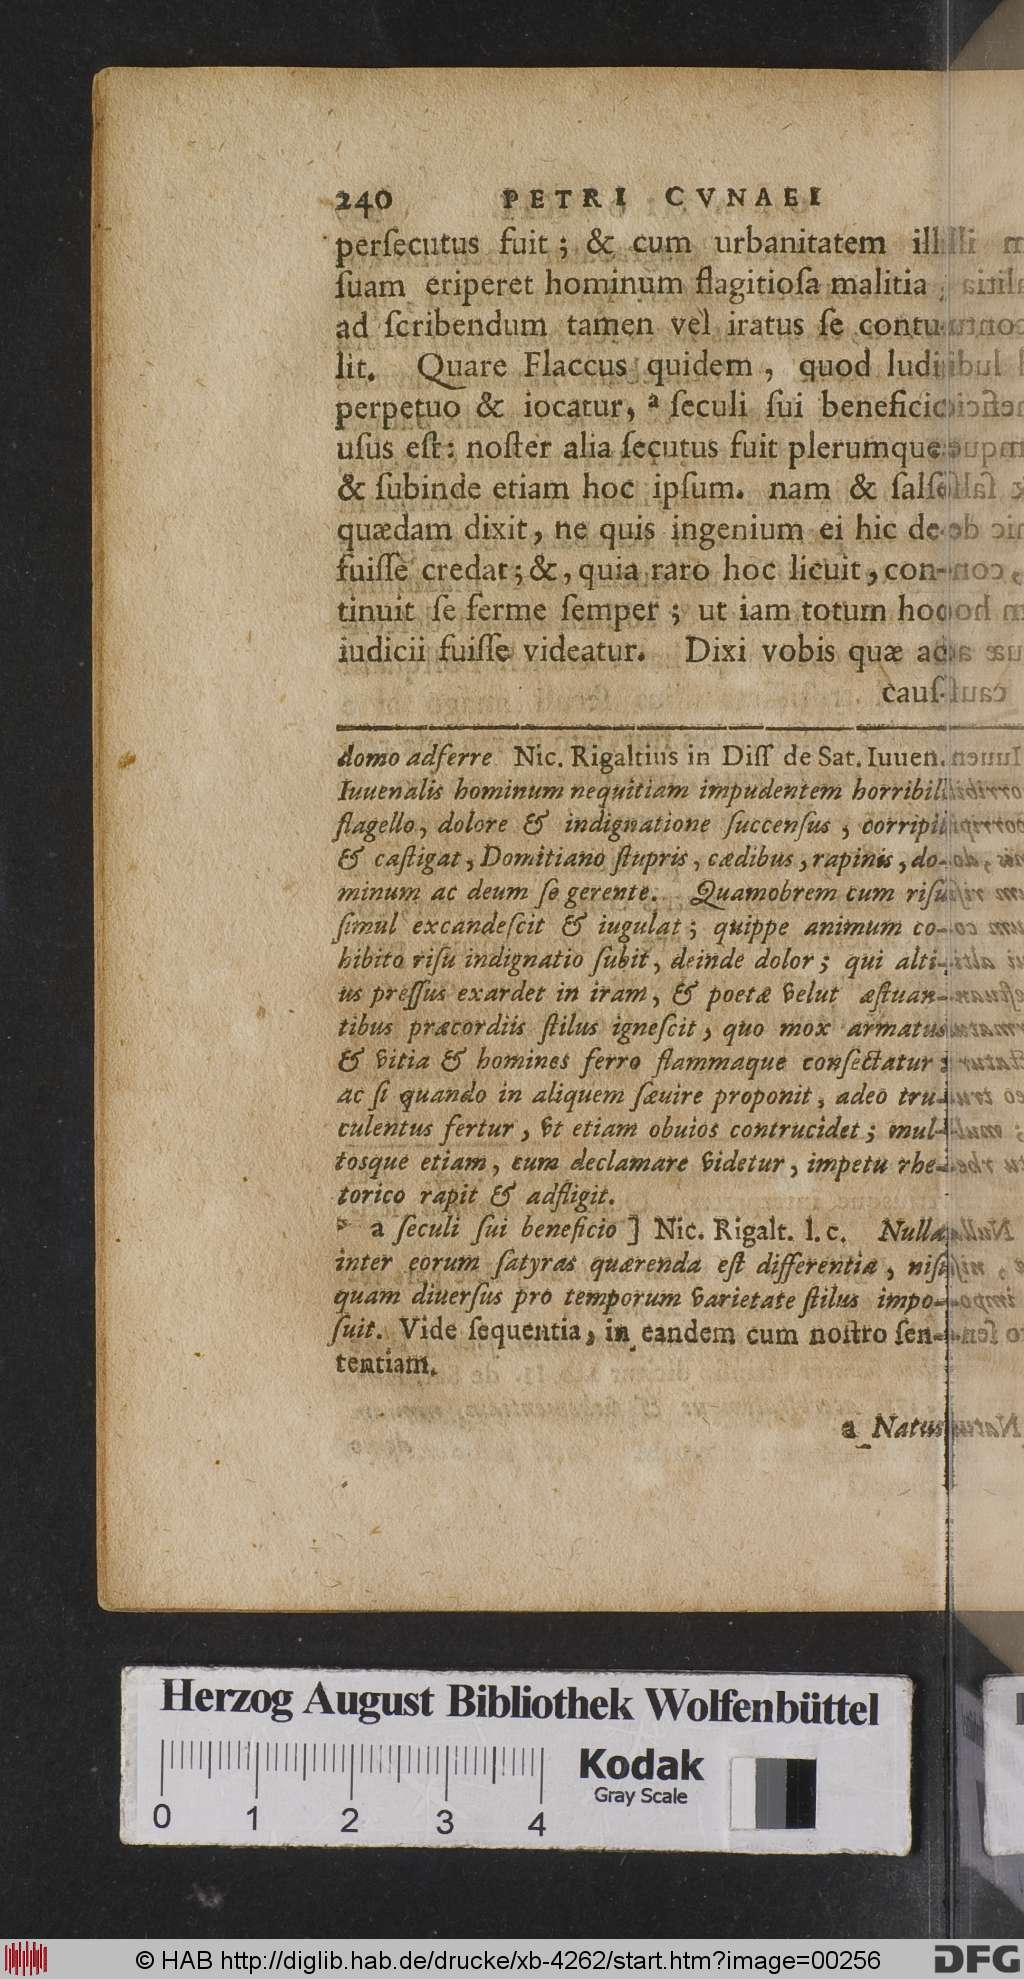 240 PETRI CVNAEI
perſecutus fuit ; & cum urbanitatem illi
ſuam eriperet hominum flagitioſa malitia ,
ad ſcribendum tamen vel iratus ſe contu-
lit. Quare Flaccus quidem , quod ludit
perpetuo & iocatur, ª ſeculi ſui beneficio
uſus eſt: noſter alia ſecutus fuit plerumque
& ſubinde etiam hoc ipſum. nam & falſe
quædam dixit, ne quis ingenium ei hic de-
fuiſſe credat ; &, quia raro hoc licuit, con-
tinuit ſe ferme ſemper ; ut iam totum hoc
iudicii fuiſſe videatur. Dixi vobis quæ ad
cauſ-
domo adferre Nic. Rigaltius in Diſſ de Sat. Iuuen.
Iuuenalis hominum nequitiam impudentem horribili
flagello, dolore & indignatione ſuccenſus , corripit
& caſtigat, Domitiano ſtupris, cædibus, rapinis, do-
minum ac deum ſe gerente. Quamobrem cum riſu
ſimul excandeſcit & iugulat ; quippe animum co-
hibito riſu indignatio ſubit, deinde dolor ; qui alti-
us preſſus exardet in iram, & poetæ velut æſtuan-
tibus præcordiis ſtilus igneſcit, quo mox armatus
& vitia & homines ferro flammaque conſectatur :
ac ſi quando in aliquem ſævire proponit, adeo tru-
culentus fertur, vt etiam obuios contrucidet ; mul-
tosque etiam, cum declamare videtur, impetu rhe-
torico rapit & adfligit.
a ſeculi ſui beneficio ] Nic. Rigalt. l. c. Nulla
inter eorum ſatyras quærenda eſt differentia , niſi
quam diuerſus pro temporum varietate ſtilus impo-
ſuit. Vide ſequentia, in eandem cum noſtro ſen-
tentiam.
a Natus
Herzog August Bibliothek Wolfenbüttel
0 1 2 3 4
Kodak
Gray Scale
© HAB http://diglib.hab.de/drucke/xb-4262/start.htm?image=00256
DFG